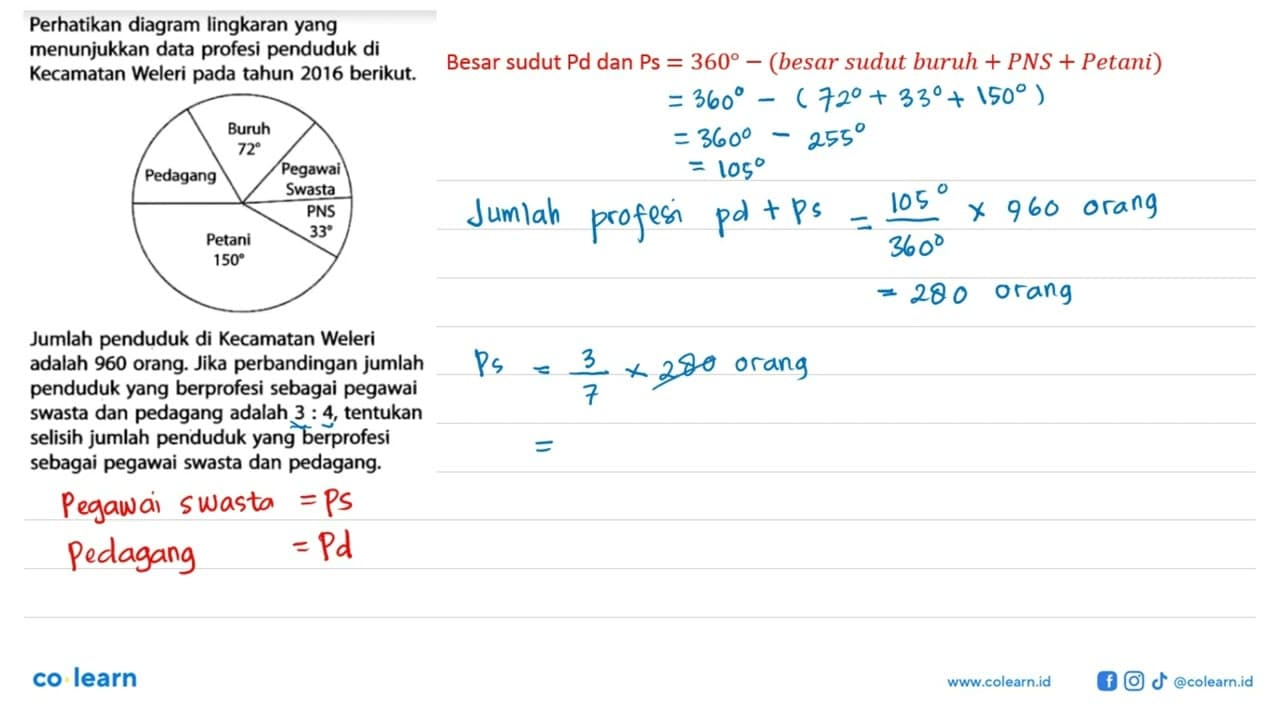 Perhatikan diagram lingkaran yang
menunjukkan data profesi penduduk di
Kecamatan Weleri pada tahun 2016 berikut.
Buruh
72°
Pedagang
Pegawai
Swasta
PNS
33°
Petani
150°
Jumlah penduduk di Kecamatan Weleri
adalah 960 orang. Jika perbandingan jumlah
penduduk yang berprofesi sebagai pegawai
swasta dan pedagang adalah 3 : 4, tentukan
selisih jumlah penduduk yang berprofesi
sebagai pegawai swasta dan pedagang.
Pegawai swasta = Ps
Pedagang = Pd
Besar sudut Pd dan Ps = 360° − (besar sudut buruh + PNS + Petani)
= 360° − (72° + 33° + 150°)
= 360° − 255°
= 105°
Jumlah profesi pd + Ps = 105°/360° × 960 orang
= 280 orang
Ps = 3/7 × 280 orang
=
co learn
www.colearn.id
@colearn.id